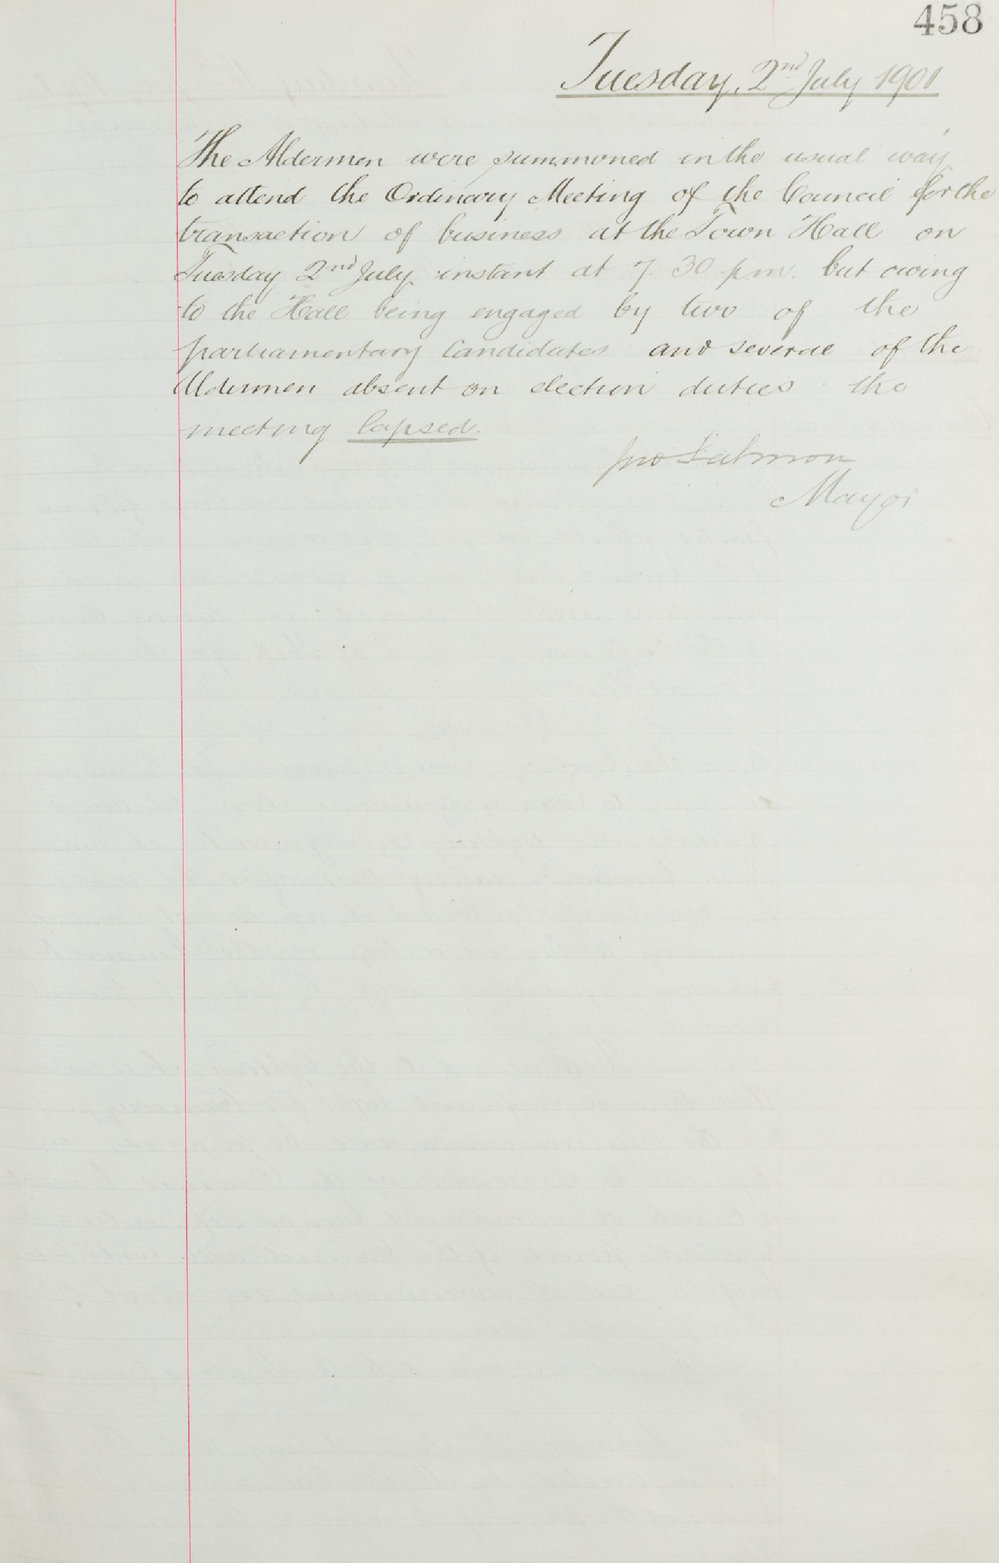 458
Tuesday, 2nd July 1901
The Aldermen were summoned in the usual way
to attend the Ordinary Meeting of the Council for the
transaction of business at the Town Hall on
Tuesday 2nd July instant at 7.30 p.m. but owing
to the Hall being engaged by two of the
parliamentary Candidates and several of the
Aldermen absent on election duties the
meeting lapsed.
Jno Salmon
Mayor